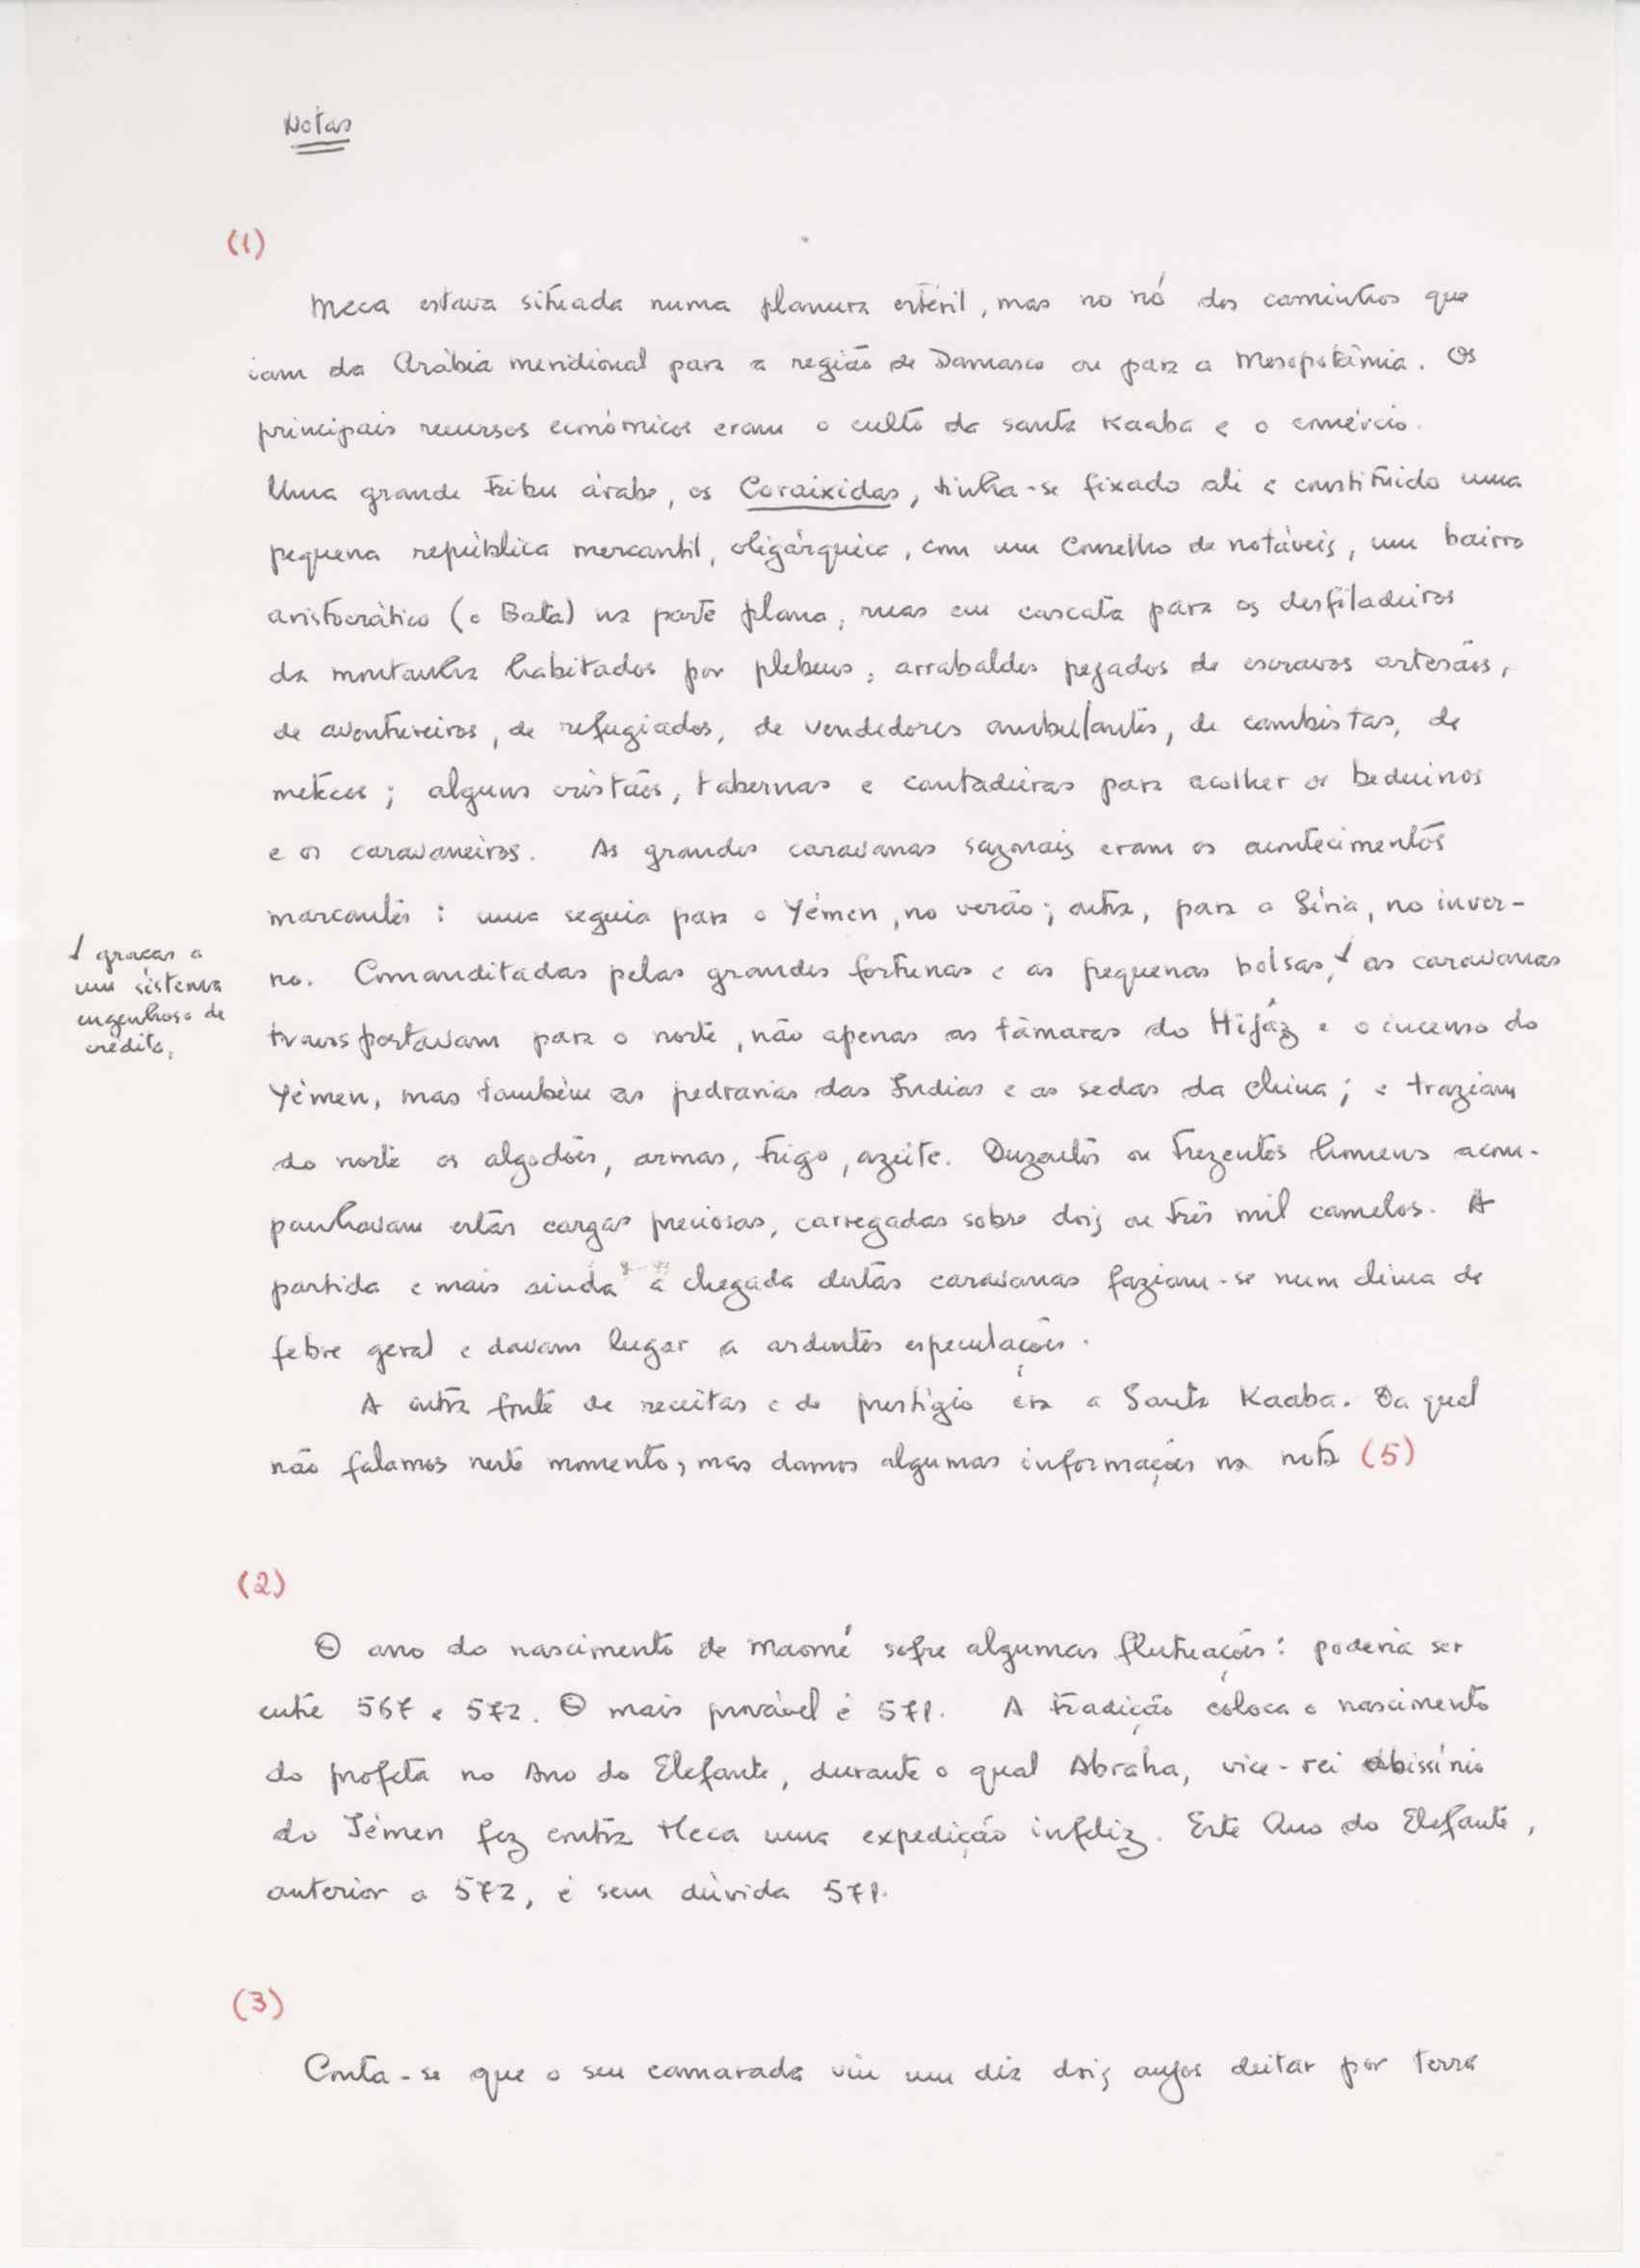 Notas
(1)
Meca estava situada numa planura estéril, mas no nó dos caminhos que
iam da Arábia meridional para a região de Damasco ou para a Mesopotâmia. Os
principais recursos económicos eram o culto da santa Kaaba e o comércio.
Uma grande tribu árabe, os Coraixidas, tinha-se fixado ali e constituido uma
pequena república mercantil, oligárquica, com um Conselho de notáveis, um bairro
aristocrático (o Bata) na parte plana, ruas em cascata para os desfiladeiros
da montanha habitados por plebeus, arrabaldes pejados de escravos artesãos,
de aventureiros, de refugiados, de vendedores ambulantes, de cambistas, de
metecos; alguns cristãos, tabernas e cantadeiras para acolher os beduinos
e os caravaneiros. As grandes caravanas sazonais eram os acontecimentos
marcantes: uma seguia para o Yémen, no verão; outra, para a Síria, no inver-
no. Comanditadas pelas grandes fortunas e as pequenas bolsas, as caravanas
graças a
um sistema
engenhoso de
crédito,
transportavam para o norte, não apenas as tâmaras do Hijáz e o incenso do
Yémen, mas também as pedrarias das Índias e as sedas da China; e traziam
do norte os algodões, armas, trigo, azeite. Duzentos ou trezentos homens acom-
panhavam estas cargas preciosas, carregadas sobre dois ou três mil camelos. A
partida e mais ainda a chegada destas caravanas faziam-se num clima de
febre geral e davam lugar a ardentes especulações.
A outra fonte de receitas e de prestígio era a Santa Kaaba. Da qual
não falamos neste momento, mas damos algumas informações na nota (5)
(2)
O ano do nascimento de Maomé sofre algumas flutuações: poderia ser
entre 567 e 572. O mais provável é 571. A tradição coloca o nascimento
do profeta no Ano do Elefante, durante o qual Abraha, vice-rei abissínio
do Iémen fez contra Meca uma expedição infeliz. Este Ano do Elefante,
anterior a 572, é sem dúvida 571.
(3)
Conta-se que o seu camarada viu um dia dois anjos deitar por terra